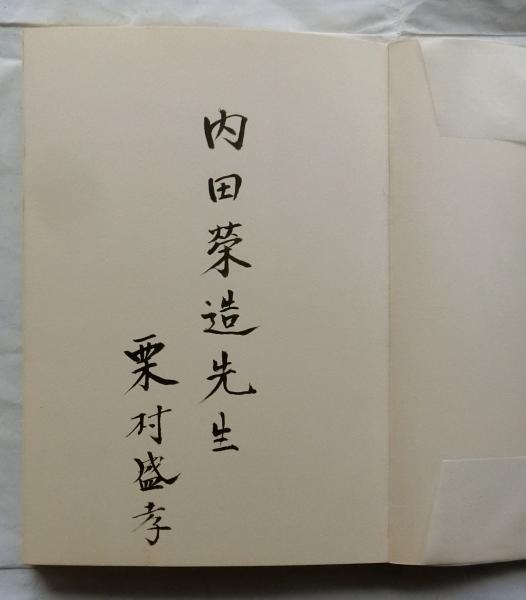 内田榮造先生
栗村盛孝